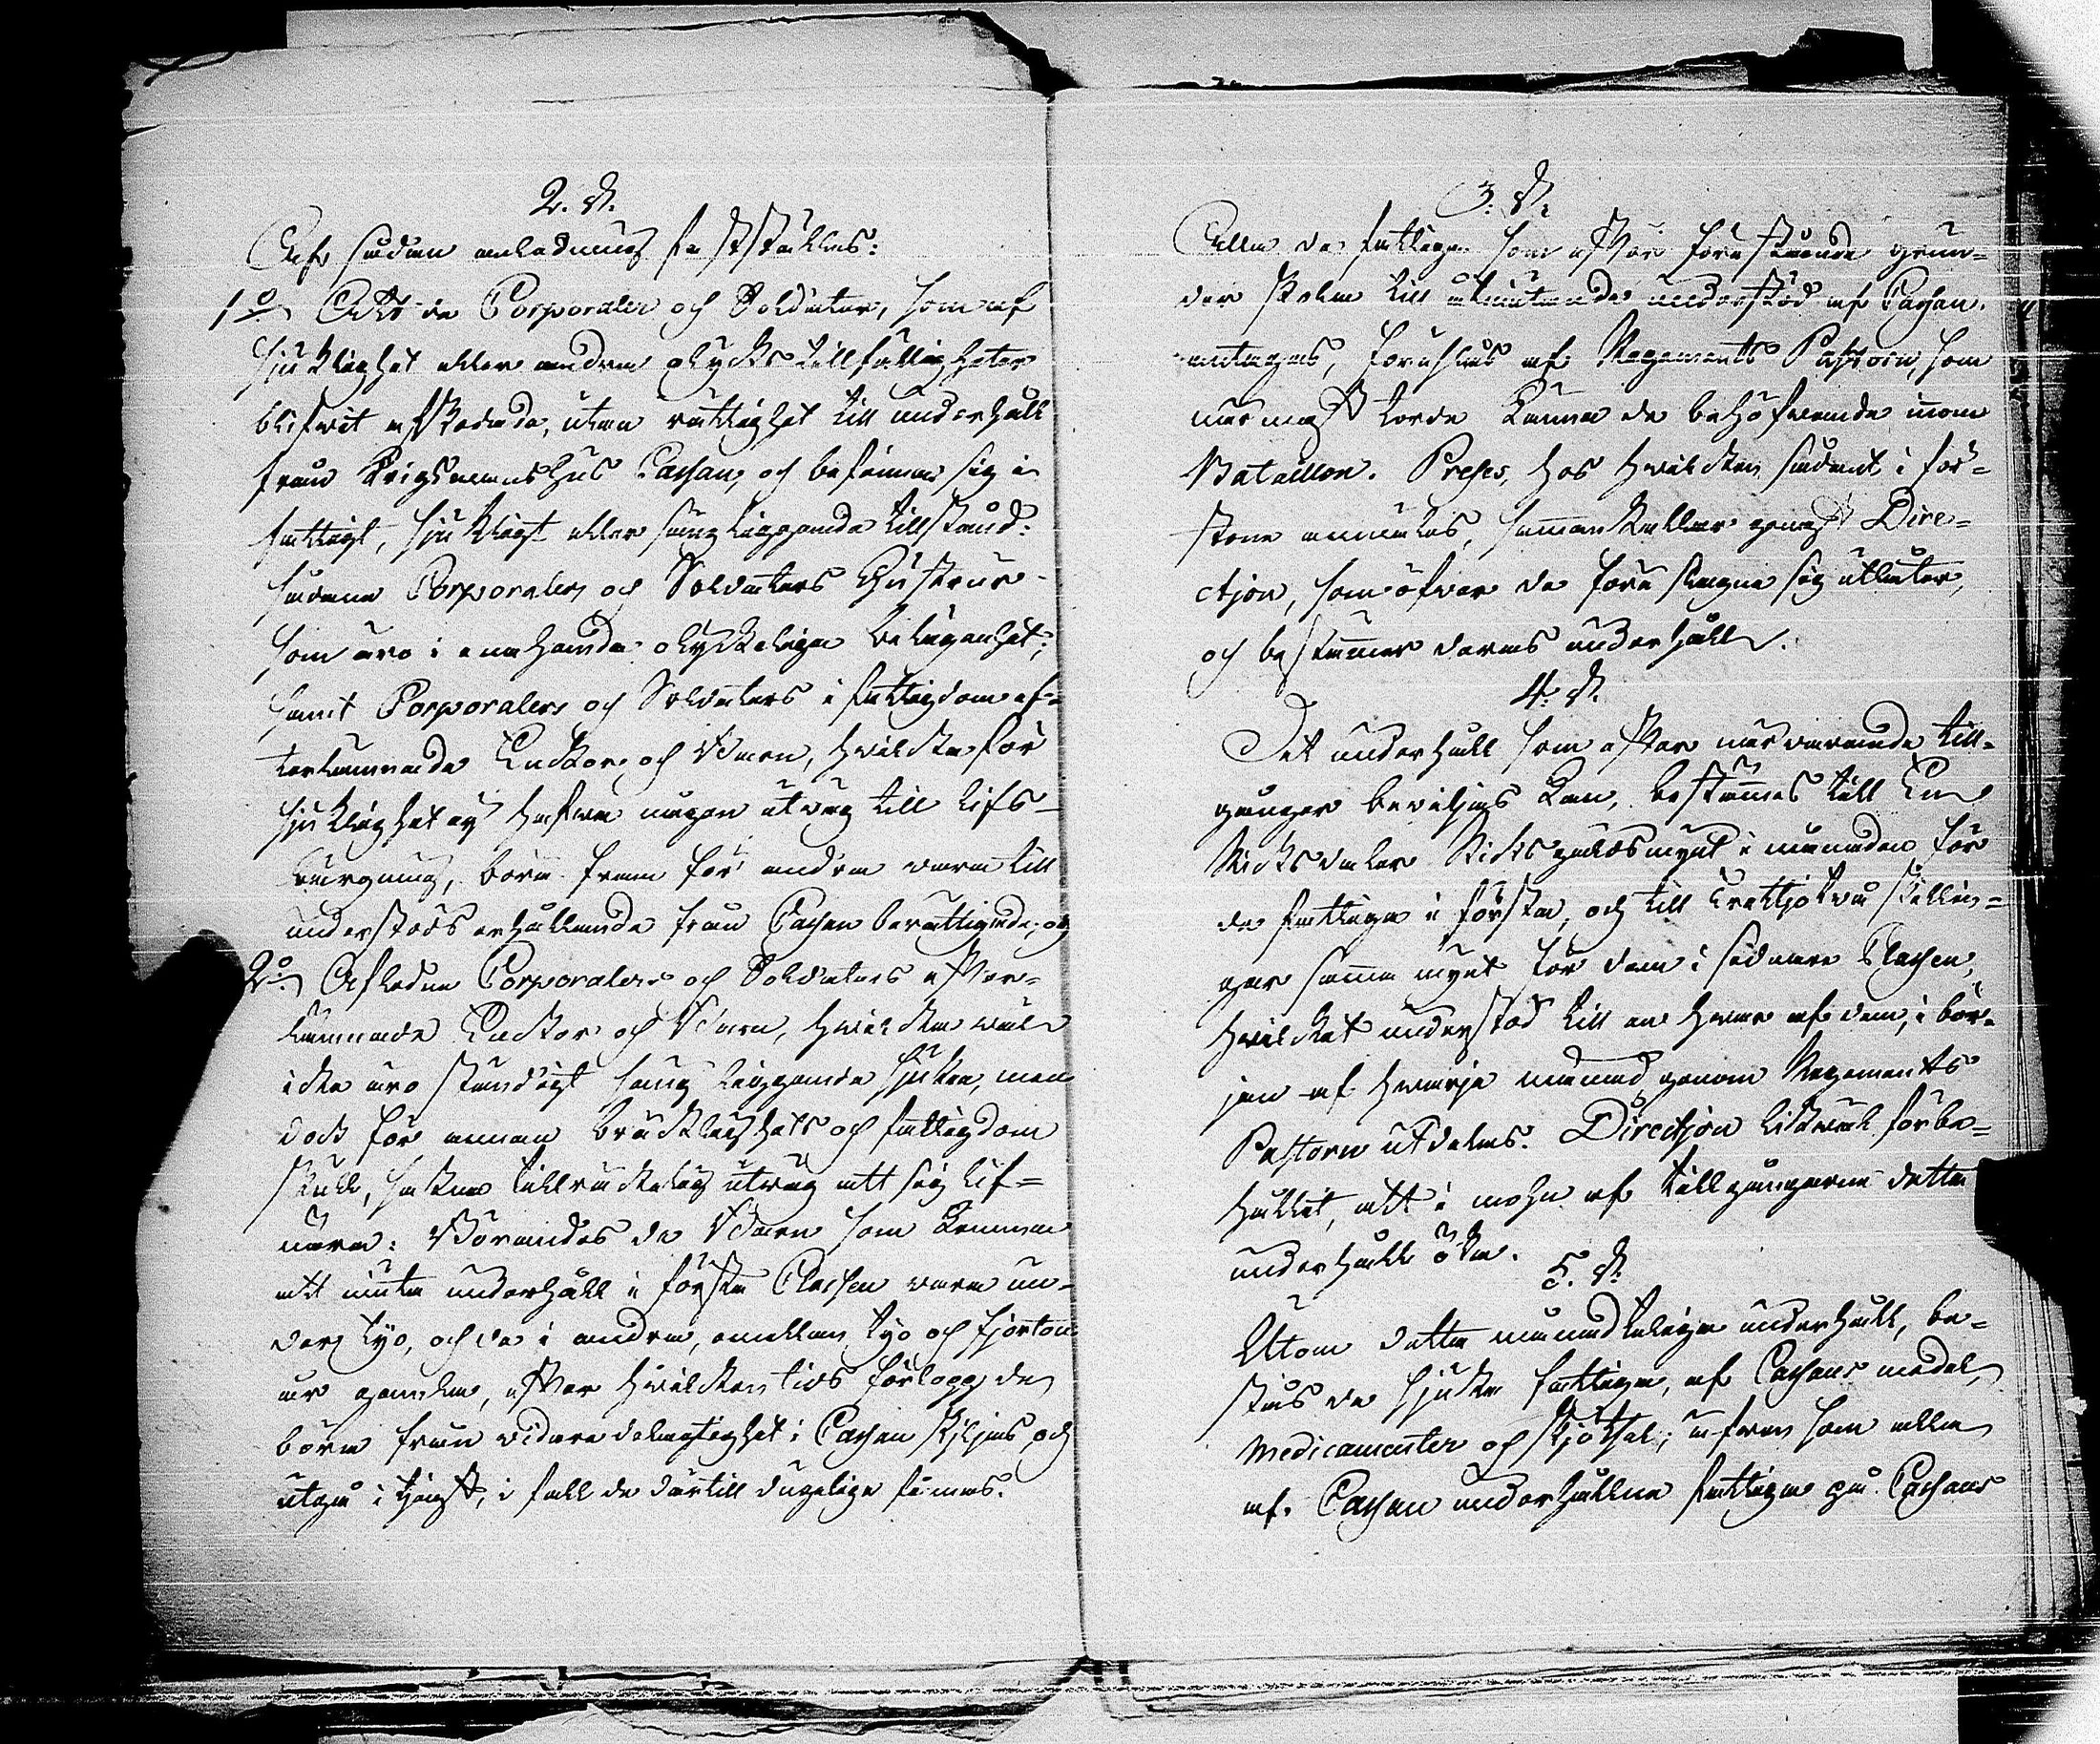 2. §.
Af sådan anledning fastställes:
1:o Att de Corporaler och Soldater, som af
sjuklighet eller andra olycks tillfälligheter
blifwit afskedade, utan rättighet till underhåll
från Krigsmanshus Cassan, och befinna sig i
fattigt, sjukligt eller sängliggande tillstånd:
sådana Corporalers och Soldaters Hustrur
som äro i enahanda olyckeliga belägenhet;
samt Corporalers och Soldaters i fattigdom ef-
terlämnade Enckor och Barn, hwilcka för
sjuklighet ej hafwa någon utväg till lifs-
bärgning, böra fram för andra vara till
understöds erhållande från Cassan berättigade; och
2:o Afledne Corporalers och Soldaters efter-
lämnade Enckor och Barn, hwilcka wäl
icke äro ständigt säng liggande sjuka, men
dock för annan bräcklighets och fattigdom
skull, sakna tillräckelig utväg att sig lif-
nära: Börandes de Barn som komma
att niuta underhåll i första Classen wara un-
der tijo, och de i andra, emellan tijo och fjorton
år gamla, efter hwilcken tids förlopp de
böra från vidare delagtighet i Cassan skiljas, och
utgå i tjenst, i fall de därtill dugelige finnas.
3. §.
Alla de fattiga som efter förestående grun-
der skola till åtniutande understöd af Cassan
antagas, föreslås af Regements Pastorn, som
närmast torde känna de behöfwande inom
Bataillon. Preses, hos hwilcken sådant i för-
stone anmäles, sammankallar genast Dire-
ctjon, som öfwer de föreslagna sig utlåter,
och bestämmer deras underhåll.
4. §.
Det underhåll som efter närvarande till-
gångar beviljas kan, bestämmes till En
Riksdaler Riksgäldsmynt i månaden för
de fattiga i första, och till Trettijotvå skillin-
gar samma mynt för dem i sednare Classen,
hwilcket understöd till en hwar af dem, i bör-
jan af hwarje månad genom Regements
Pastorn utdelas. Directjon likwäl förbe-
hållit, att i mohn af tillgångarne detta
underhåll öka.
5. §.
Utom detta månadteliga underhåll, be-
stås de sjuka fattiga, af Cassans medel,
medicamenter och skjötsel; äfwen som alla
af Cassan underhållna fattiga på Cassans